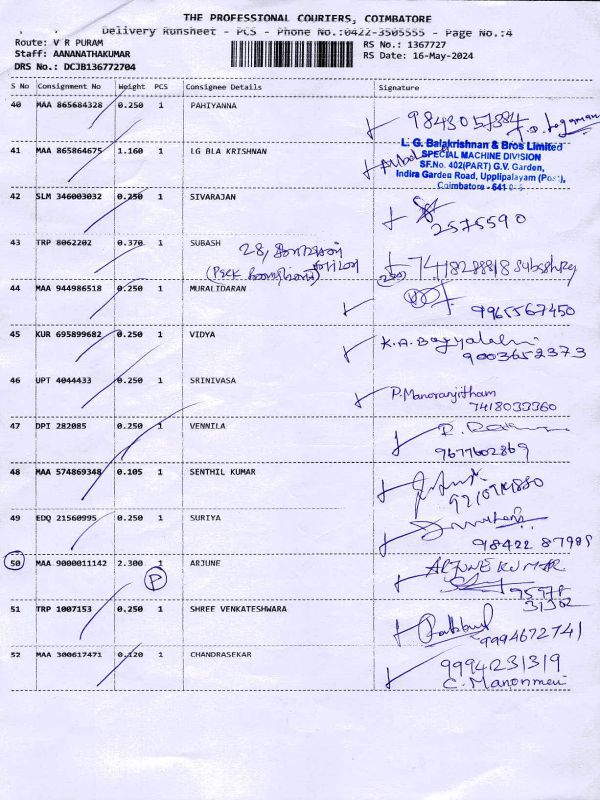 THE PROFESSIONAL COURIERS, COIMBATORE
Delivery Runsheet - PCS - Phone No.:0422-3505555 - Page No.:4
Route: V R PURAM
RS No.: 1367727
Staff: AANANATHAKUMAR
RS Date: 16-May-2024
DRS No.: DCJB136772704
S No Consignment No Weight PCS Consignee Details Signature
40 MAA 865684328 0.250 1 PAHIYANNA
9843057384
41 MAA 865864675 1.160 1 LG BLA KRISHNAN
L. G. Balakrishnan & Bros Limited
SPECIAL MACHINE DIVISION
SF.No. 402(PART) G.V. Garden,
Indira Garden Road, Upplipalayam (Post),
Coimbatore - 641
42 SLM 346003032 0.250 1 SIVARAJAN
2575590
43 TRP 8062202 0.370 1 SUBASH
28,
7418288818
44 MAA 944986518 0.250 1 MURALIDARAN
9965567450
45 KUR 695899682 0.250 1 VIDYA
K.A.
9003652373
46 UPT 4044433 0.250 1 SRINIVASA
P.Manoranjitham
7418033360
47 DPI 282085 0.250 1 VENNILA
9677602869
48 MAA 574869348 0.105 1 SENTHIL KUMAR
49 EDQ 21560995 0.250 1 SURIYA
98422 87989
50 MAA 9000011142 2.300 1 ARJUNE
P
ARJUNE KUMAR
51 TRP 1007153 0.250 1 SHREE VENKATESHWARA
9994672741
52 MAA 300617471 0.120 1 CHANDRASEKAR
9994231319
C. Manonmeni